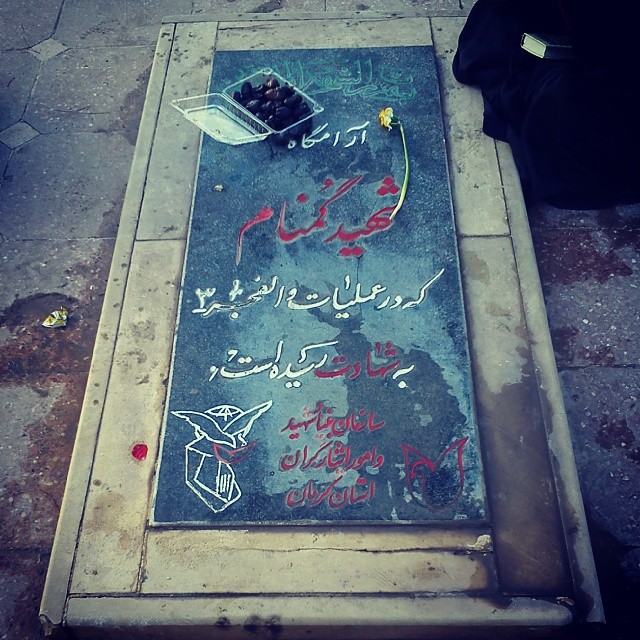 آرامگاه
شهید گمنام
که در عملیات والفجر ۳
به شهادت رسیده است
سازمان بنیاد شهید
و امور ایثارگران
استان کرمان